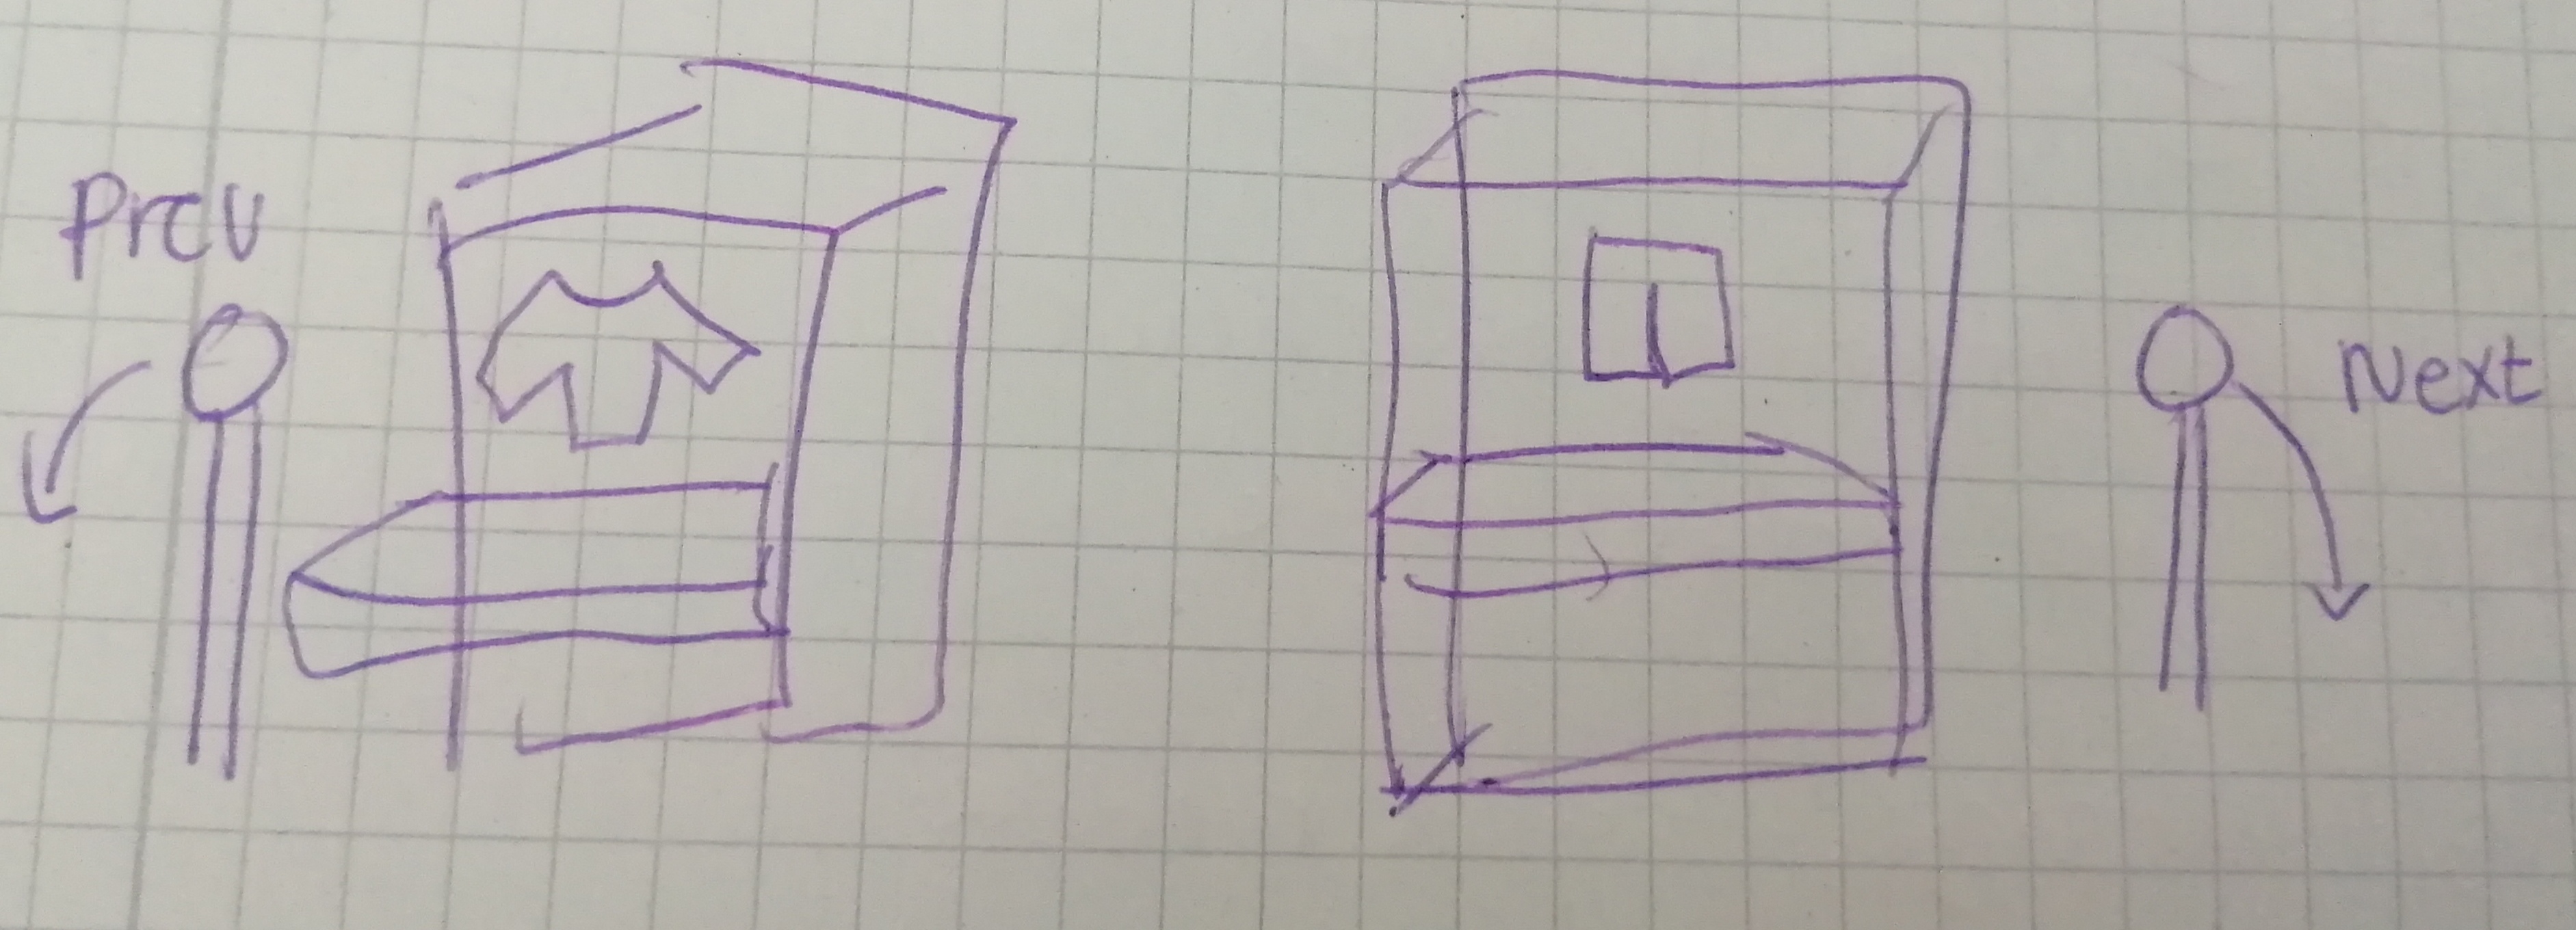 Prev
Next